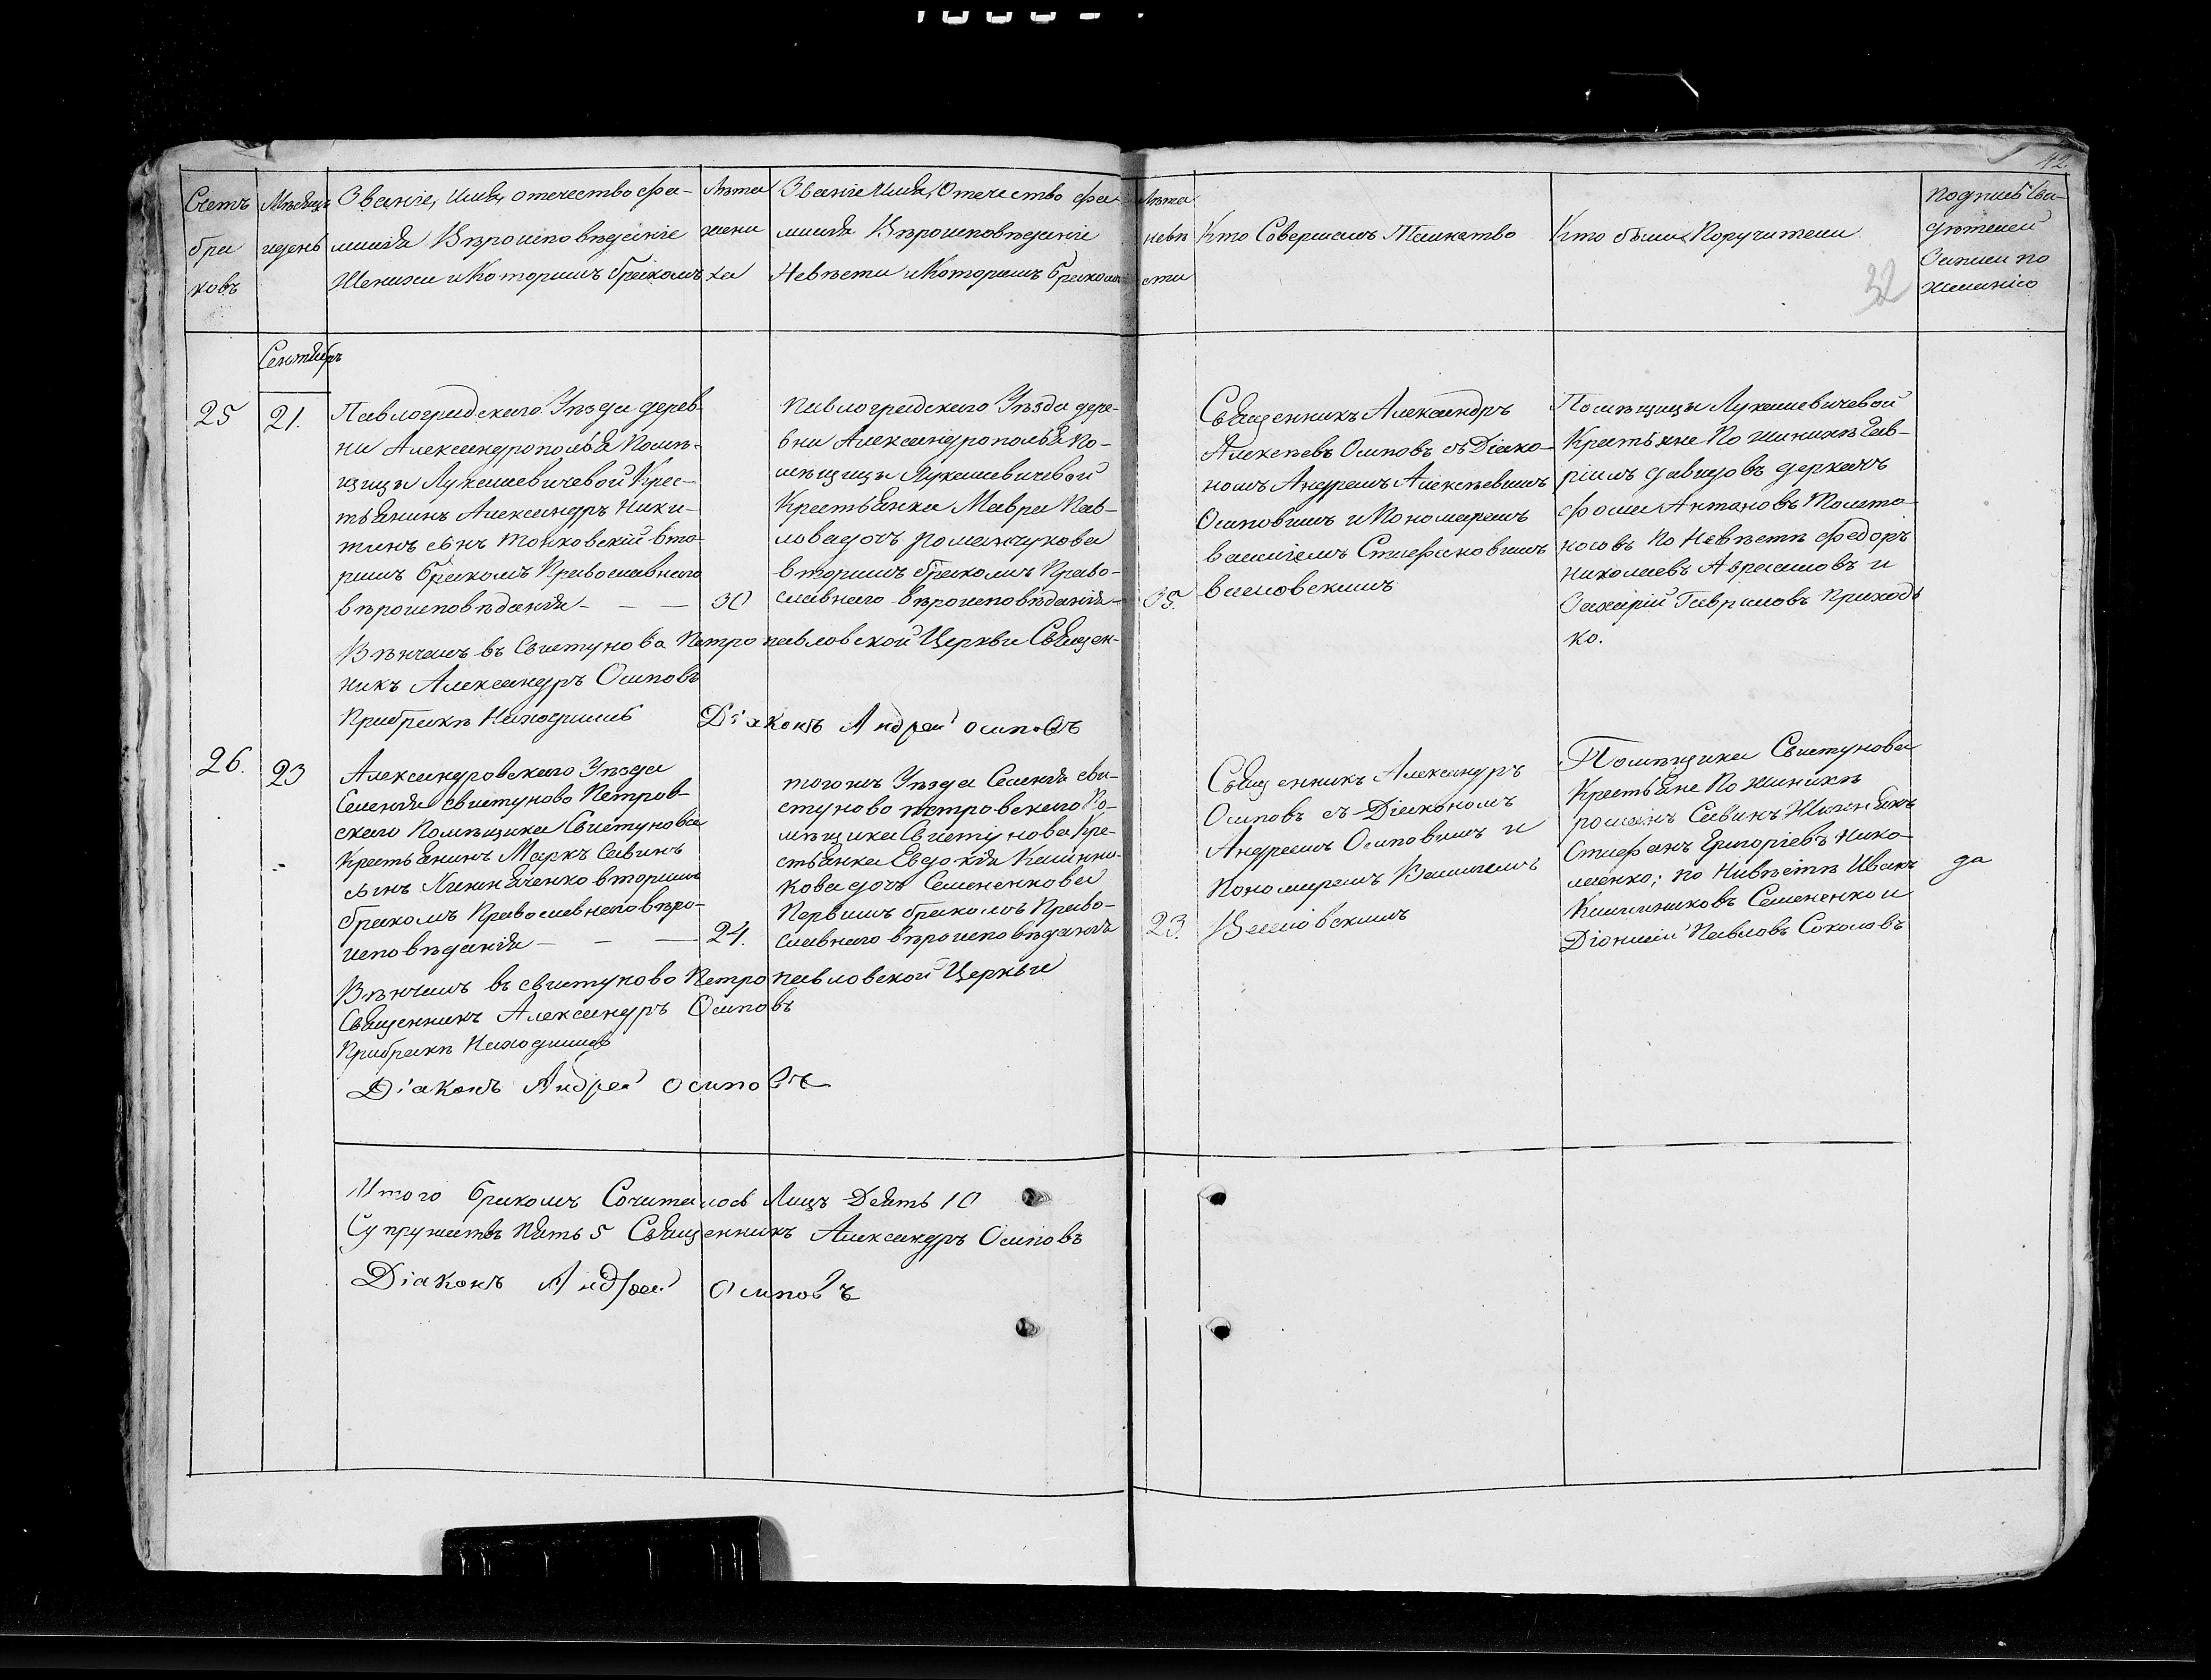 42.
32
Счетъ
бра
ковъ
Мѣсяцъ
идень
Званіе, имя, отечество фа-
милія Вѣроисповѣданіе
Жениха и Которымъ бракомъ
Лѣта
жени
ха
Званіе Имя, Отечество фа-
милія Вѣроисповѣданіе
Невѣсти и Которымъ бракомъ
Лѣта
невѣ
сти
Кто Совершалъ Таинство
Кто были Поручители
подписъ Сви-
дѣтелей
Записи по
желанію
Сентябрь
25
21.
Павлоградскаго Уѣзда дерев-
ни Александрополья Помѣ-
щицы Лукашевичевой Крес-
тьянинъ Александръ Ники-
тинъ сынъ Тонковскій вто-
рымъ бракомъ Православнаго
вѣроисповѣданія - - -
30
Павлоградскаго Уѣзда дере-
вни Александрополья По-
мѣщицы Лукашевичевой
Крестьянка Мавра Пав-
лова дочъ романчукова
вторимъ бракомъ Право-
славнаго вѣроисповѣданія -
35.
Священникъ Александръ
Алексѣевъ Осиповъ съ Діако-
номъ Андреемъ Алексѣевымъ
Осиповымъ и Пономаремъ
василіемъ Стефановымъ
Помѣщицы Лукашевичевой
Крестьяне По жинихѣ Гав-
ріилъ давидовъ деркачъ
фома Антоновъ Толсто-
носовъ По Невѣстѣ федоръ
николаевъ Аврамовъ и
Захарій Гавриловъ Приходь
ко.
Вѣнчалъ въ Свистунова Петропавловской Церкви Священ-
никъ Александръ Осиповъ
При бракѣ Находились Діаконъ Андрей осиповъ
26.
23
Александровскаго Уѣзда
Селенія свистуново Петров-
скаго Помѣщика Свистунова
Крестьянинъ Маркъ Савинъ
сынъ вторимъ
бракомъ Православнаго вѣро-
исповѣданія - - -
24.
тогожъ Уѣзда Селенія сви-
стуново петровскаго По-
мѣщика Свистунова Кре-
стьянка Евдокія Калинни-
кова дочъ Семененкова
Первымъ бракомъ Право-
славнаго вѣроисповѣданія
23.
Священникъ Александръ
Осиповъ съ Діакономъ
Андреемъ Осиповымъ и
Пономаремъ Василіемъ
Помѣщика Свистунова
Крестьяне По жинихѣ
романъ Савинъ
Стефанъ Григоріевъ Нико-
лаенко; по Нивѣстѣ Иванъ
Калиниковъ Семененко и
Діонисій Павловъ Соколовъ
да
Вѣнчалъ въ свистуново Петропавловской Церкви
Священникъ Александръ Осиповъ
При бракѣ Находились
Діаконъ Андрей осиповъ
Итого бракомъ Сочиталось Лицъ Десять 10
Супружествъ Пять 5 Священникъ Александръ Осиповъ
Діаконъ Андрей Осиповъ